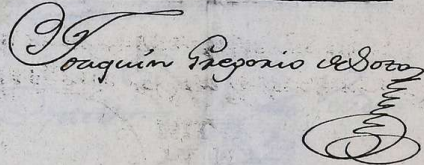 Joaquín Gregorio de Soto